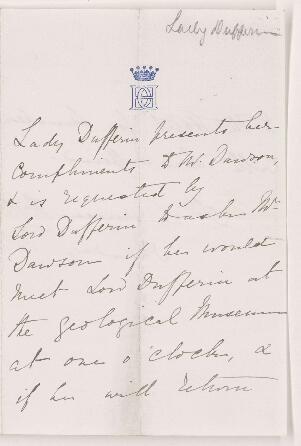 Lady Dufferin
Lady Dufferin presents her
Compliments to Mr. Dawson,
& is requested by
Lord Dufferin to ask Mr
Dawson if he would
meet Lord Dufferin at
the Geological Museum
at one o'clock, &
if he will return